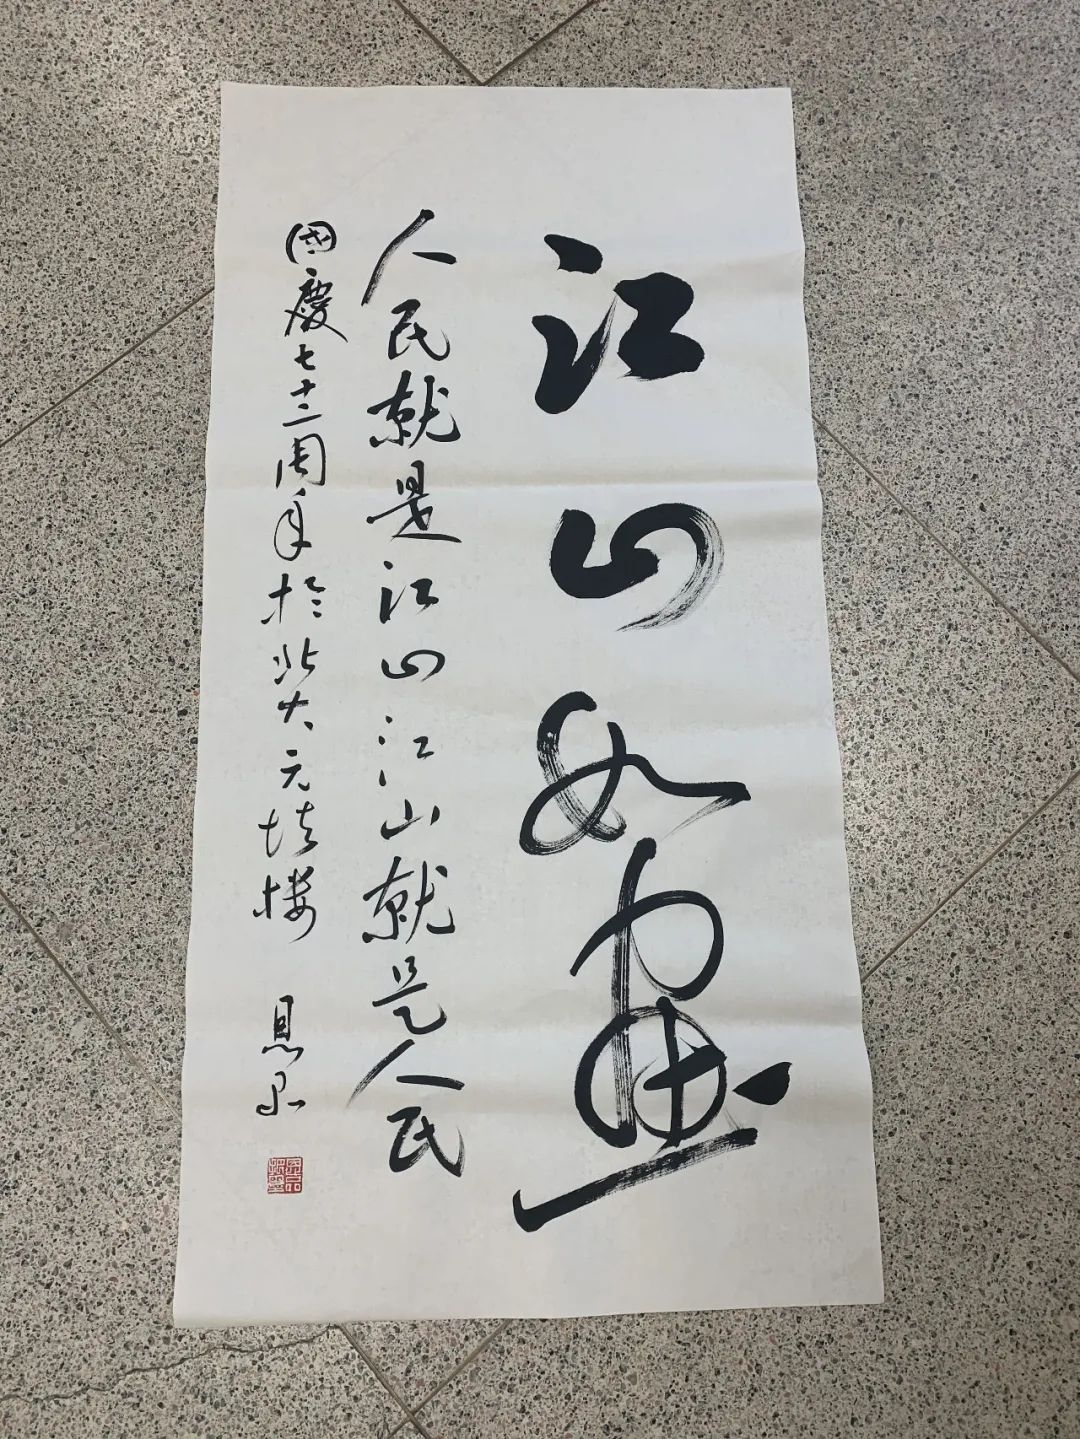 江山如画
人民就是江山江山就是人民
国慶七十二周年於北大元培楼